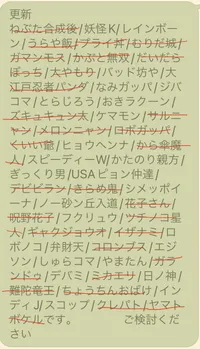 更新
ねぶた合成後/妖怪K/レインボー
ン/うらや飯/フライ丼/むりだ城/
ガマンモス/かぶと無双/だいだら
ぼっち/大やもり/バッド坊や/大
江戸忍者パンダ/なみガッパ/ジバ
コマ/とらじろう/おきラクーン/
ズキュキュン太/ケマモン/サルニ
ャン/メロンニャン/ロボガッパ/
くいい爺/ヒョウヘンナ/から傘魔
人/スピーディーW/かたのり親方/
ぎっくり男/USAピョン仲達/
デビビラン/きらめ鬼/シメッポイ
ーナ/ノー砂ン丘入道/花子さん/
呪野花子/フクリュウ/ツチノコ星
人/ギャクジョウオ/イザナミ/ロ
ボノコ/弁財天/コロンブス/エジ
ソン/しゅらコマ/やまたん/ガラ
ンドゥ/デバミ/ミカエサ/日ノ神/
難陀竜王/ちょうちんおばけ/イン
ディJ/スコップ/クレパト/ヤマト
ボケルです。 ご検討くだ
さい